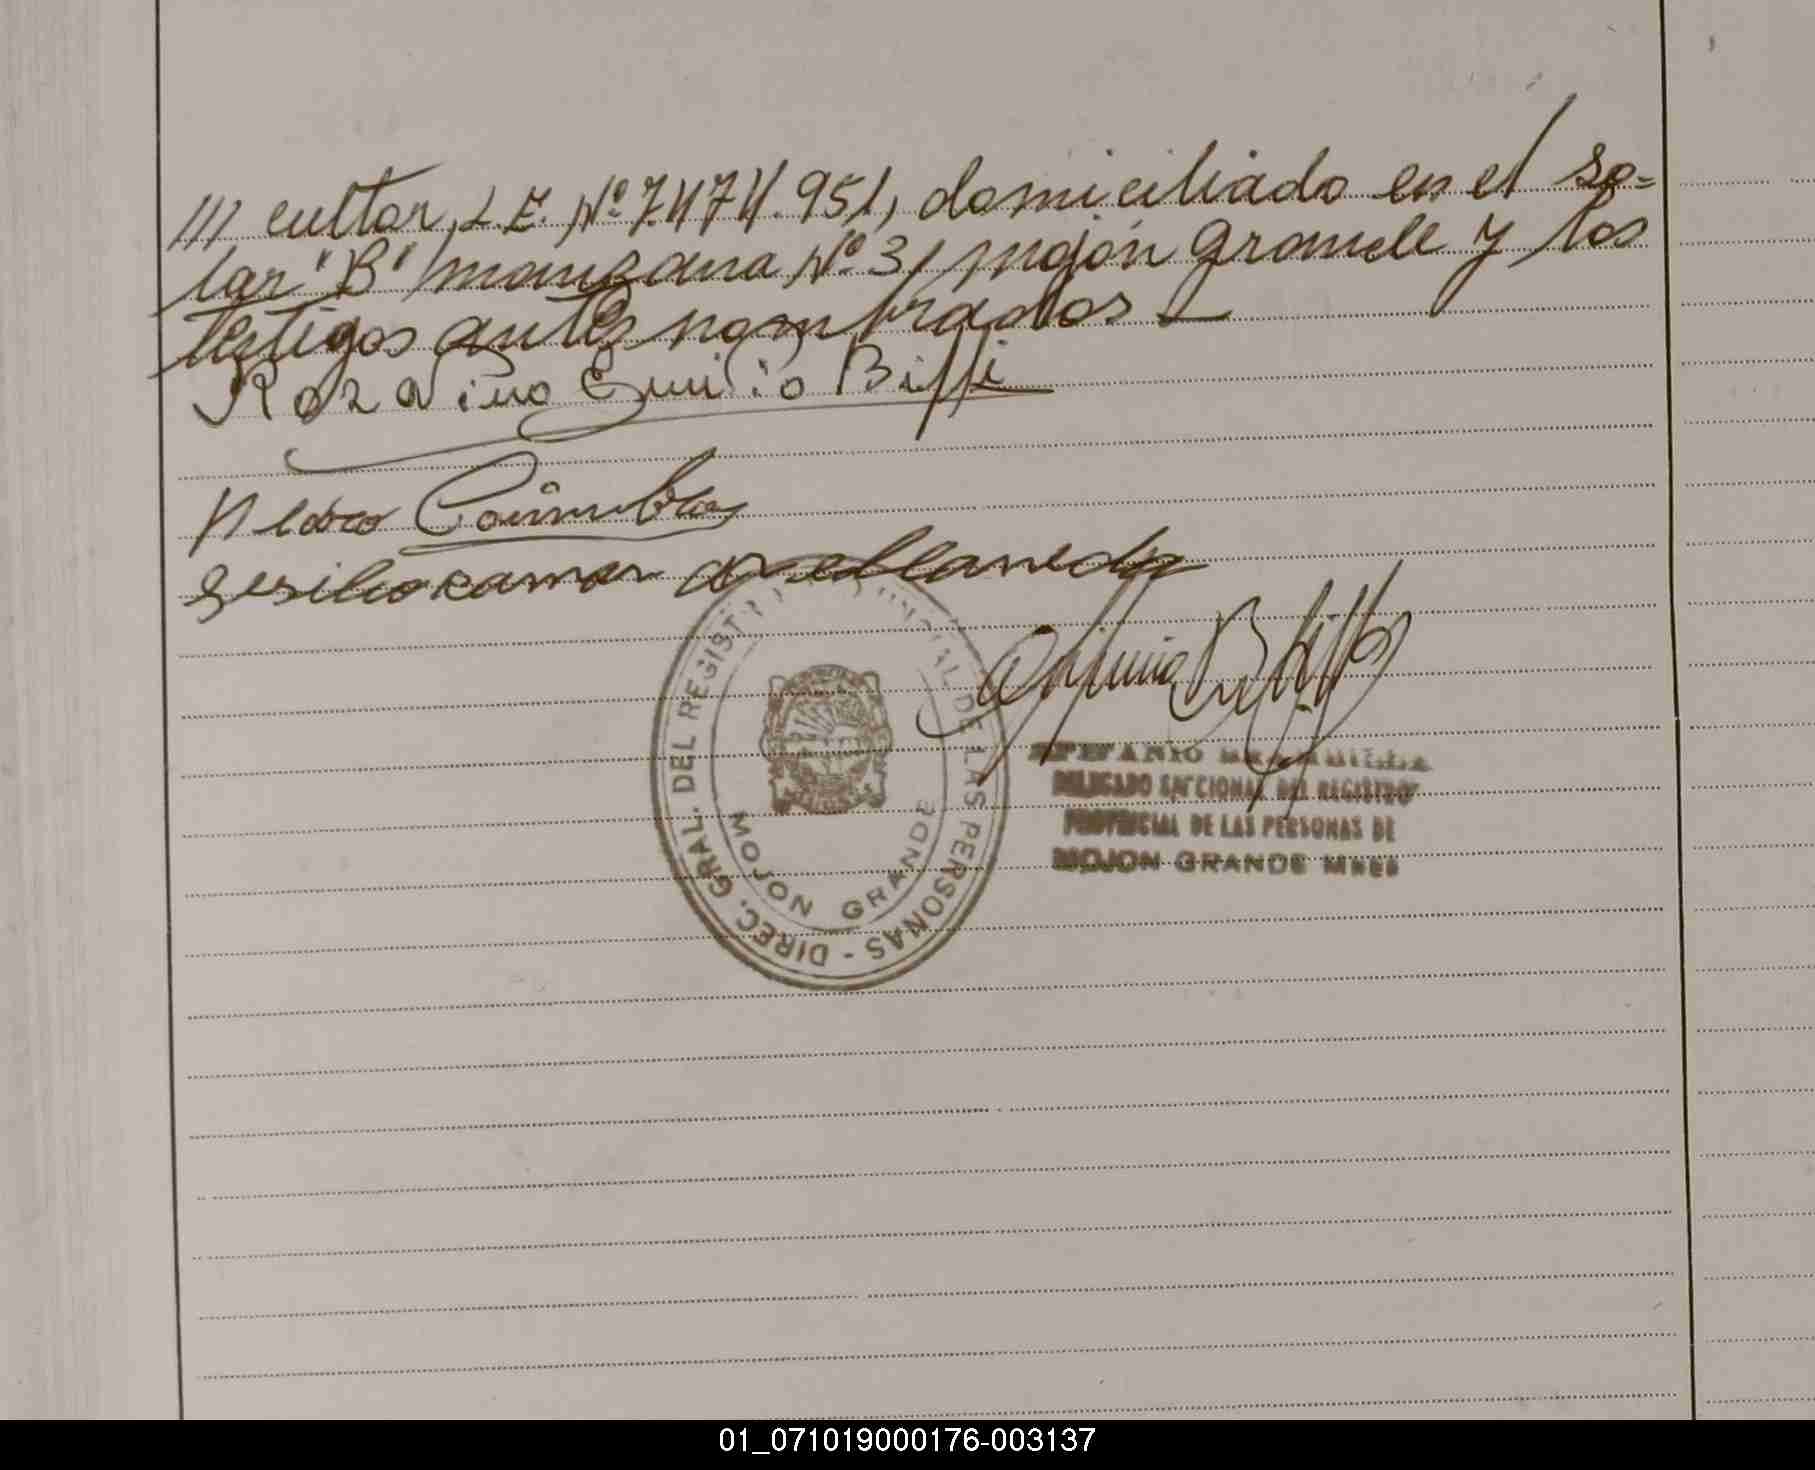 /// cultor, L.E. Nº 7.474.951, domiciliado en el so=
lar "B" manzana Nº 3, mojón grande y los
testigos antes nombrados —
Emilio Biffi
Pedro Coimbra
ramon avellaneda
DIREC. GRAL. DEL REGIST DE LAS PERSONAS -
MOJON GRANDE
EPIFANIO
DELEGADO SECCIONAL DEL REGISTRO
PROVINCIAL DE LAS PERSONAS DE
MOJON GRANDE Mnes
01_071019000176-003137